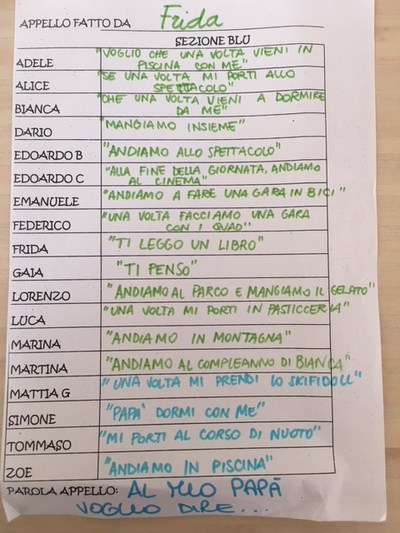 APPELLO FATTO DA Frida
SEZIONE BLU
ADELE "VOGLIO CHE UNA VOLTA VIENI IN
PISCINA CON ME"
ALICE "SE UNA VOLTA MI PORTI ALLO
SPETTACOLO"
BIANCA "CHE UNA VOLTA VIENI A DORMIRE
DA ME"
DARIO "MANGIAMO INSIEME"
EDOARDO B "ANDIAMO ALLO SPETTACOLO"
EDOARDO C "ALLA FINE DELLA GIORNATA, ANDIAMO
AL CINEMA"
EMANUELE "ANDIAMO A FARE UNA GARA IN BICI"
FEDERICO "UNA VOLTA FACCIAMO UNA GARA
CON I QUAD"
FRIDA "TI LEGGO UN LIBRO"
GAIA "TI PENSO"
LORENZO "ANDIAMO AL PARCO E MANGIAMO IL GELATO"
LUCA "UNA VOLTA MI PORTI IN PASTICCERIA"
MARINA "ANDIAMO IN MONTAGNA"
MARTINA "ANDIAMO AL COMPLEANNO DI BIANCA"
MATTIA G "UNA VOLTA MI PRENDI LO SKIFIDOLL"
SIMONE "PAPA' DORMI CON ME"
TOMMASO "MI PORTI AL CORSO DI NUOTO"
ZOE "ANDIAMO IN PISCINA"
PAROLA APPELLO: AL MIO PAPÀ
VOGLIO DIRE...